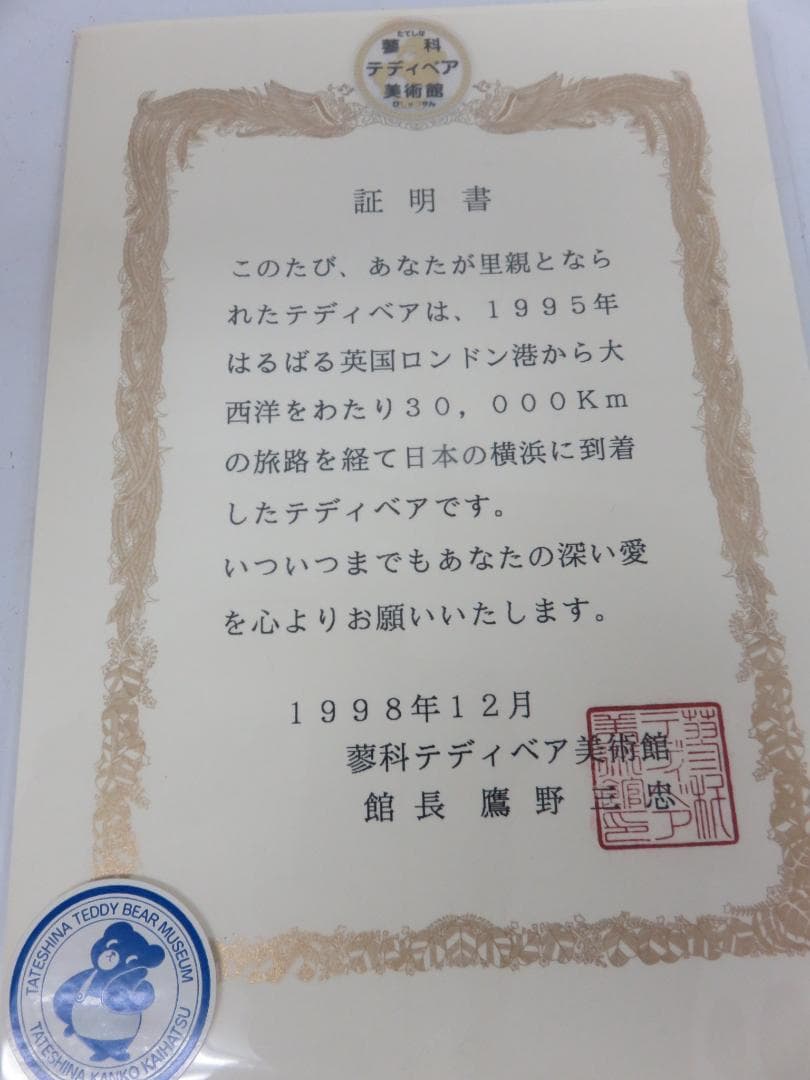 たてしな
蓼科
テディベア
美術館
証明書
このたび、あなたが里親となら
れたテディベアは、１９９５年
はるばる英国ロンドン港から大
西洋をわたり３０，０００Ｋｍ
の旅路を経て日本の横浜に到着
したテディベアです。
いついつまでもあなたの深い愛
を心よりお願いいたします。
１９９８年１２月
蓼科テディベア美術館
館長 鷹野三忠
蓼科
テディベア
美術館印
TATESHINA TEDDY BEAR MUSEUM
TATESHINA KANKO KAIHATSU